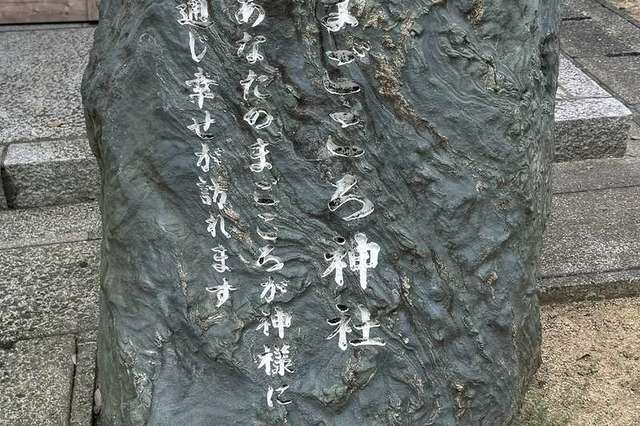 まごころ神社
あなたのまごころが神様に
通し幸せが訪れます